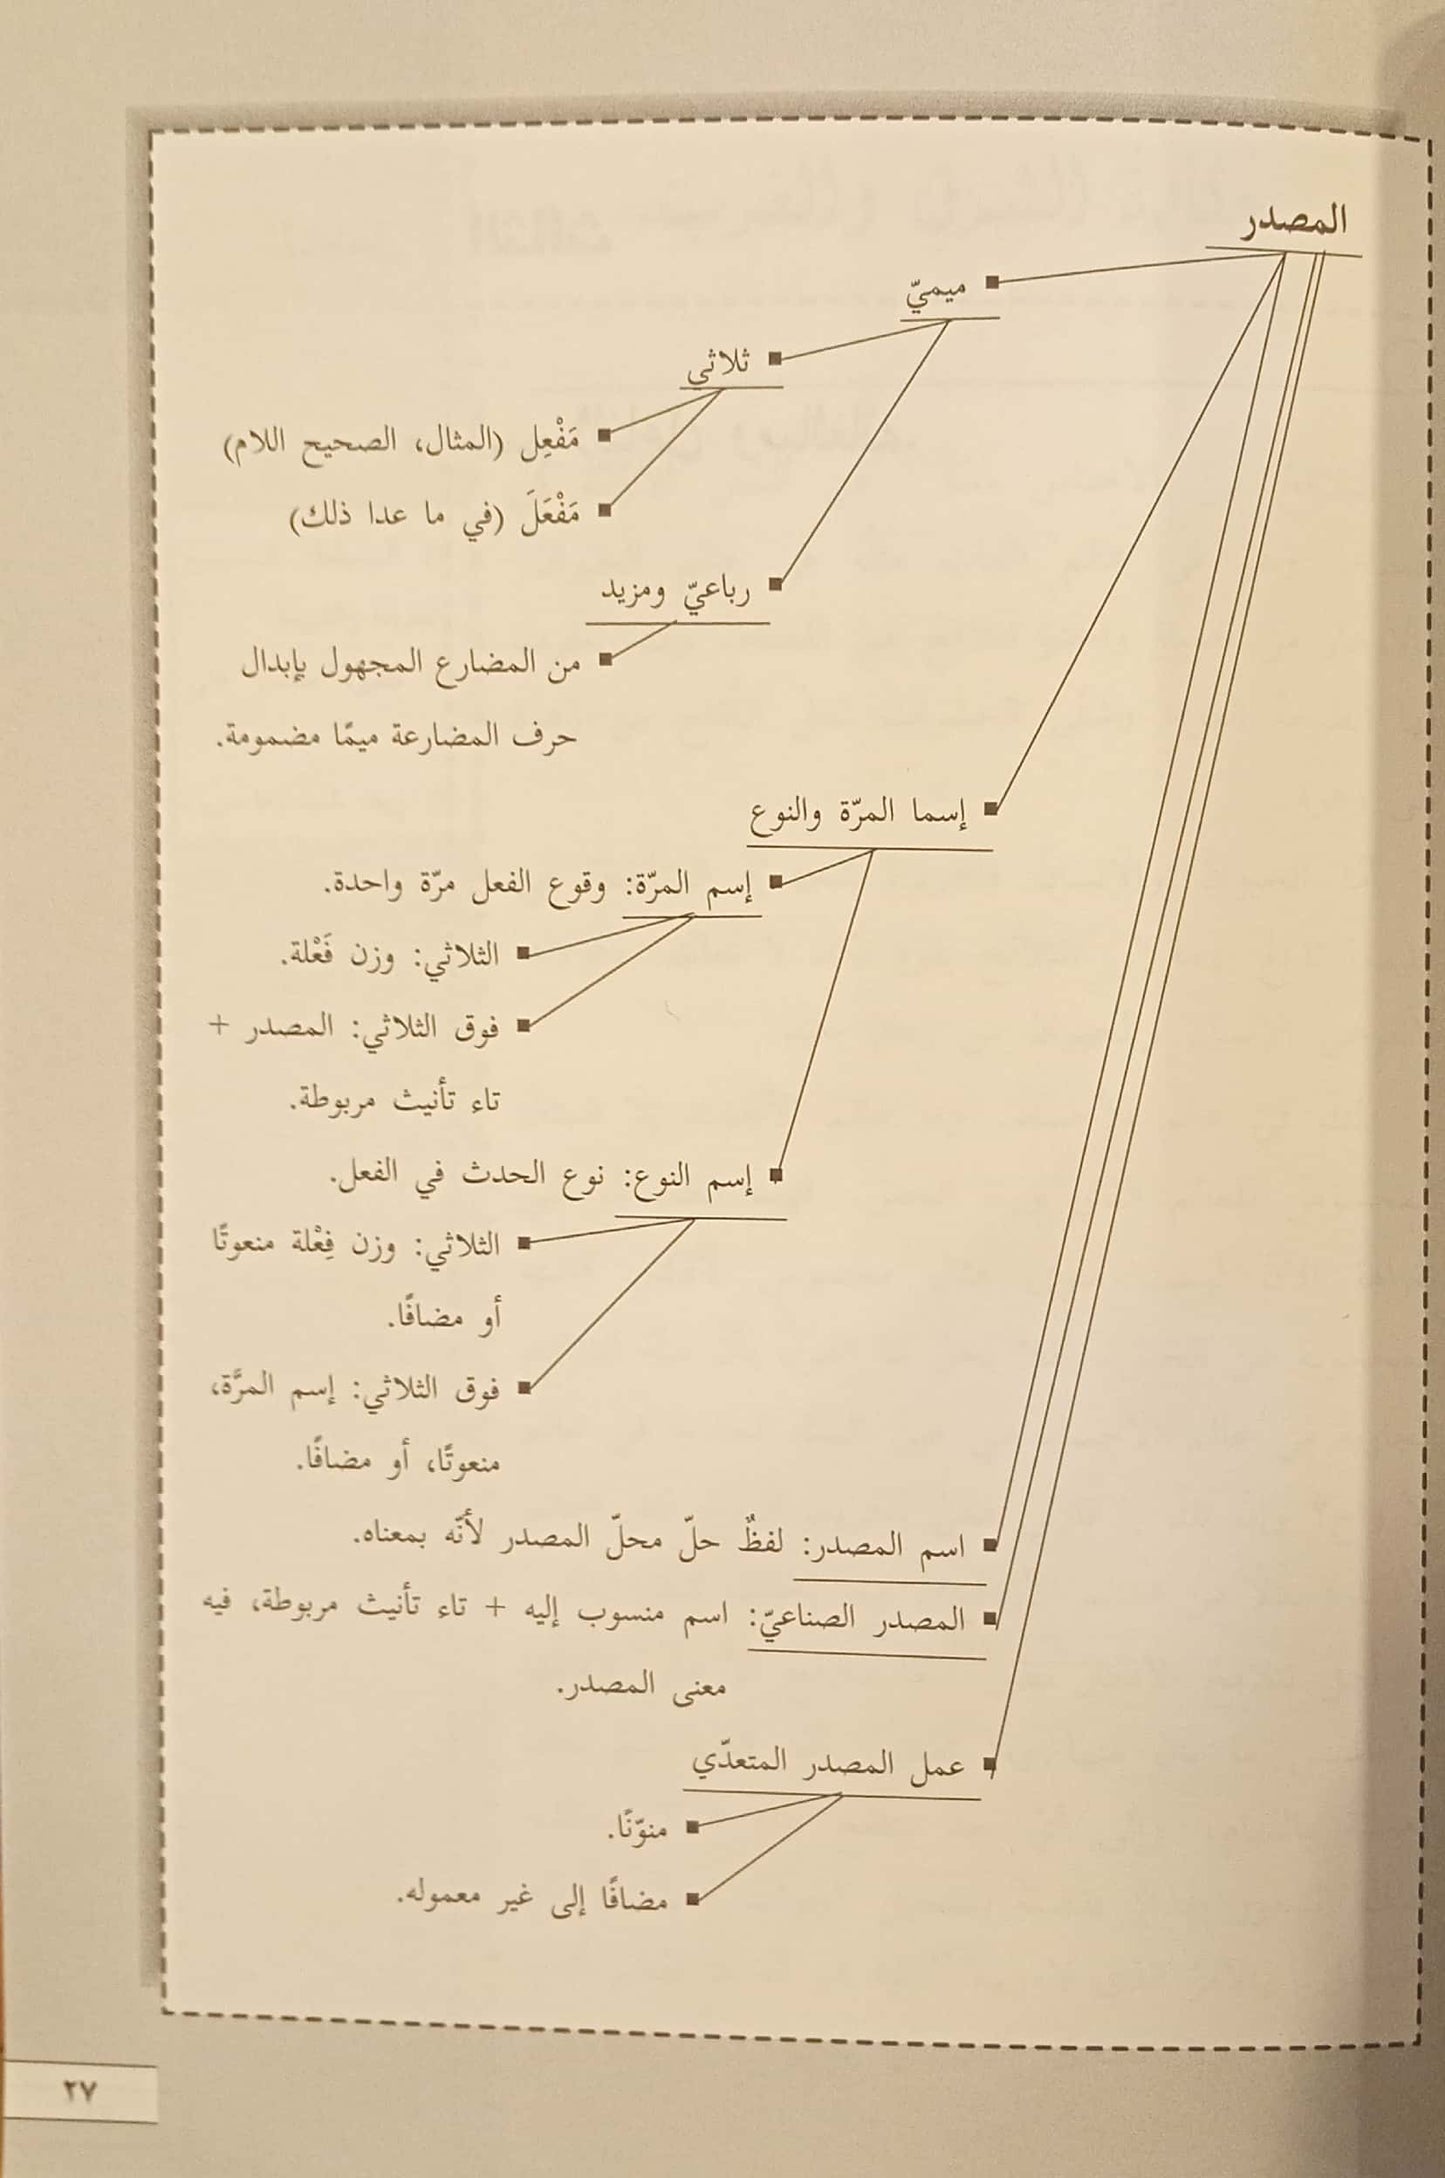 المصدر
ميميّ
ثلاثي
مَفْعِل (المثال، الصحيح اللام)
مَفْعَلَ (في ما عدا ذلك)
رباعيّ ومزيد
من المضارع المجهول بإبدال
حرف المضارعة ميمًا مضمومة.
إسما المرّة والنوع
إسم المرّة: وقوع الفعل مرّة واحدة.
الثلاثي: وزن فَعْلة.
فوق الثلاثي: المصدر +
تاء تأنيث مربوطة.
إسم النوع: نوع الحدث في الفعل.
الثلاثي: وزن فِعْلة منعوتًا
أو مضافًا.
فوق الثلاثي: إسم المرَّة،
منعوتًا، أو مضافًا.
اسم المصدر: لفظٌ حلّ محلّ المصدر لأنّه بمعناه.
المصدر الصناعيّ: اسم منسوب إليه + تاء تأنيث مربوطة، فيه
معنى المصدر.
عمل المصدر المتعدّي
منوّنًا.
مضافًا إلى غير معموله.
٢٧